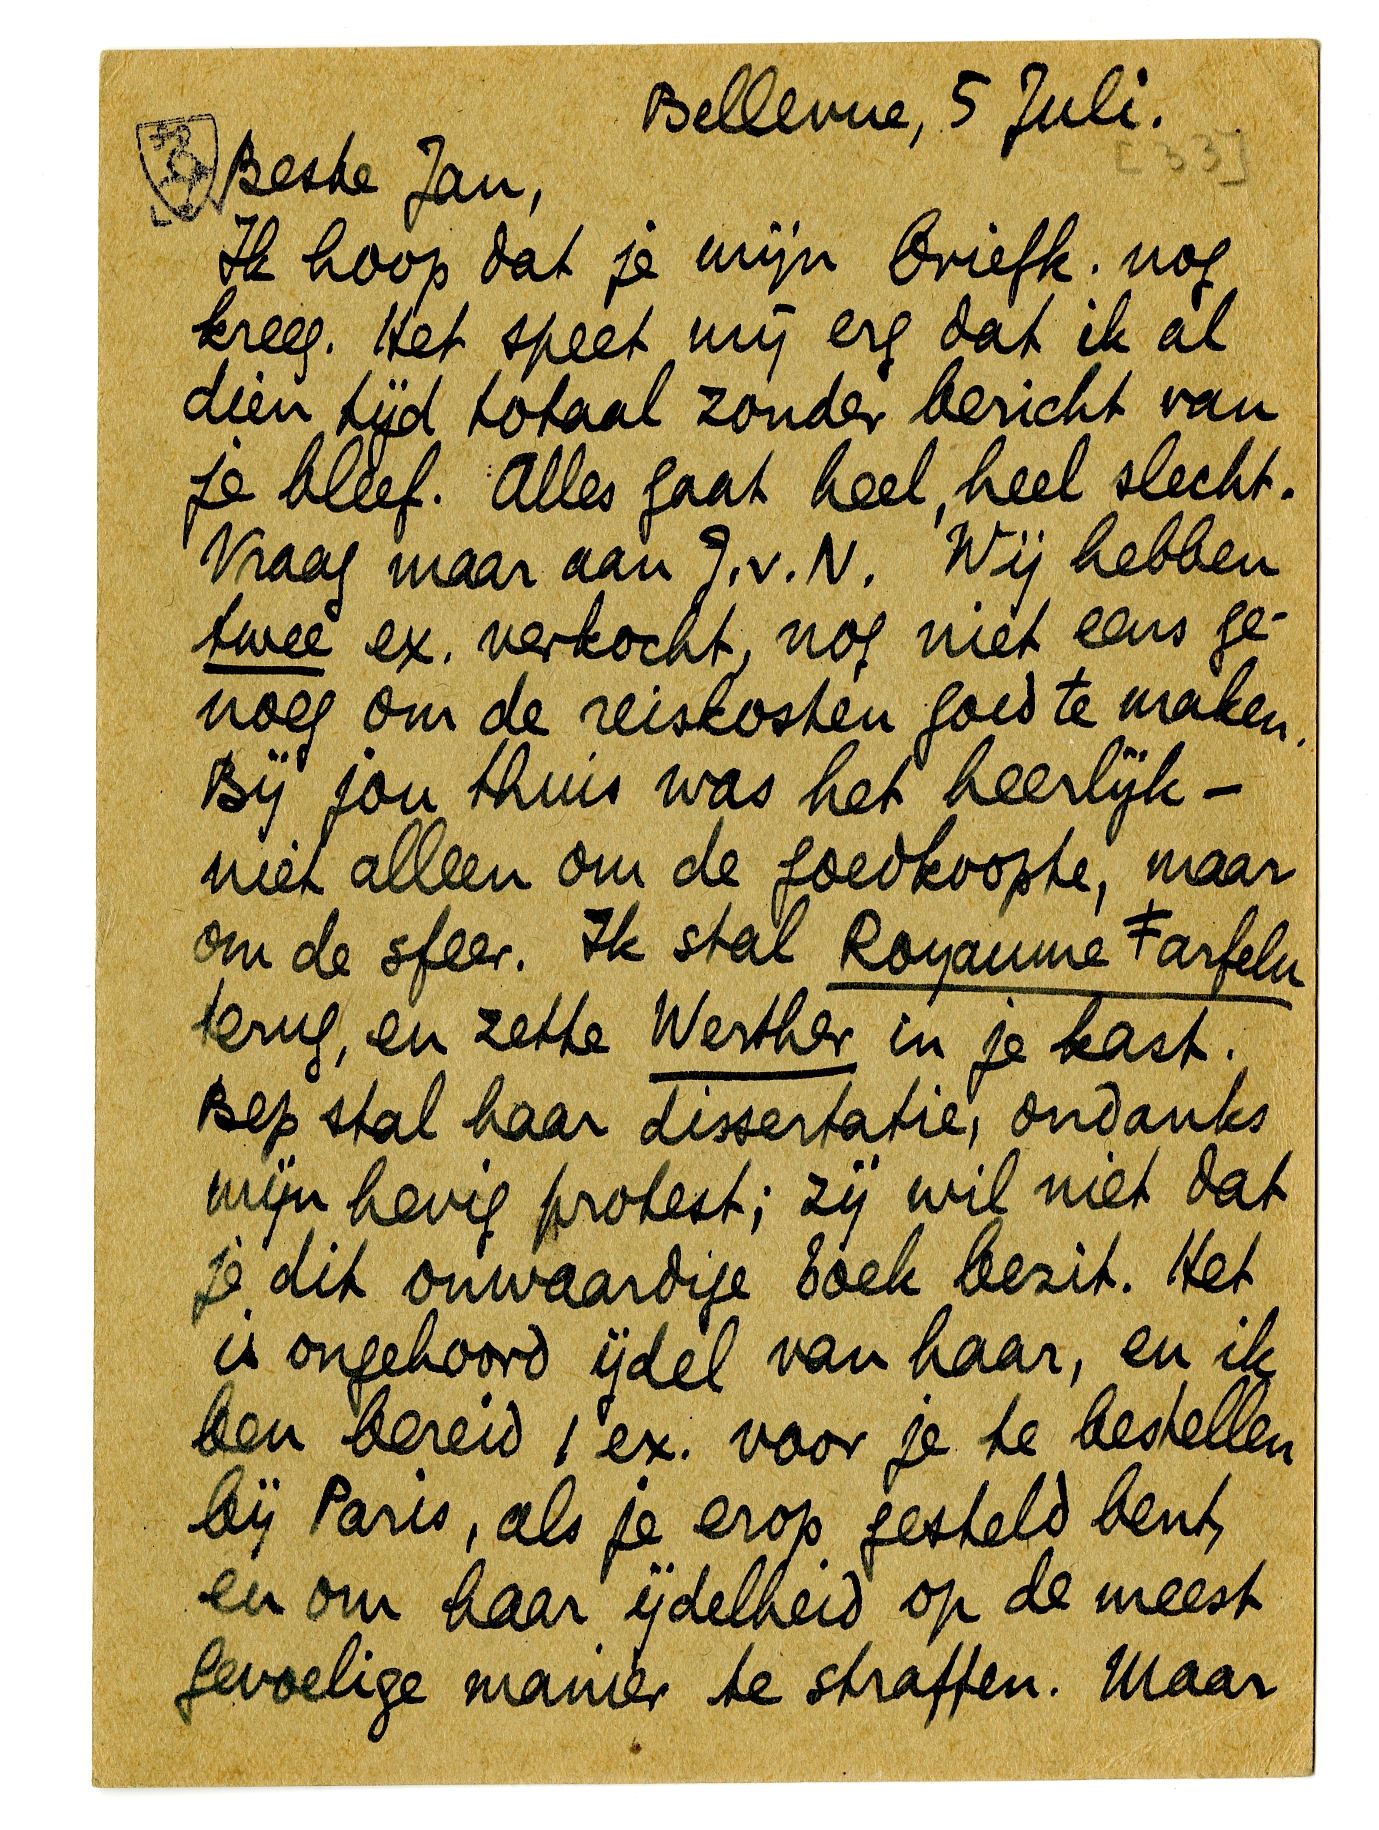 Bellevue, 5 Juli.
[33]
Beste Jan,
Ik hoop dat je mijn briefk. nog
kreeg. Het speet mij erg dat ik al
dien tijd totaal zonder bericht van
je bleef. Alles gaat heel, heel slecht.
Vraag maar aan J.v.N. Wij hebben
twee ex. verkocht, nog niet eens ge-
noeg om de reiskosten goed te maken.
Bij jou thuis was het heerlijk –
niet alleen om de goedkoopte, maar
om de sfeer. Ik stal Royaume Farfelu
terug, en zette Werther in je kast.
Bep stal haar dissertatie, ondanks
mijn hevig protest; zij wil niet dat
je dit onwaardige boek bezit. Het
is ongehoord ijdel van haar, en ik
ben bereid 1 ex. voor je te bestellen
bij Paris, als je erop gesteld bent,
en om haar ijdelheid op de meest
gevoelige manier te straffen. Maar